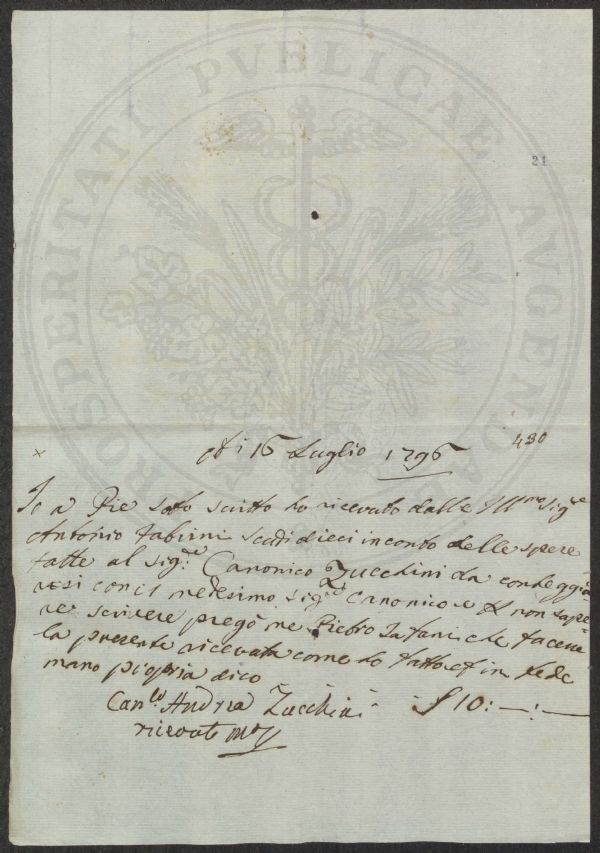 PROSPERITATI PVBLICAE AVGENDAE
21
430
Adi 16 Luglio 1796
Io a Pie soto scritto ho ricevuto dalle Illmo Sigre
Antonio Fabrini Scudi dieci in conto delle spere
fatte al Sigr. Canonico Zucchini da conteggia
resi con il medesimo Sigre Canonico e P non sape=
re scrivere pregò me Pietro che facene
la presente ricevuta come ho fatto et in fede
mano propria dico
Canco Andrea Zucchini £ 10:—:—
ricevute